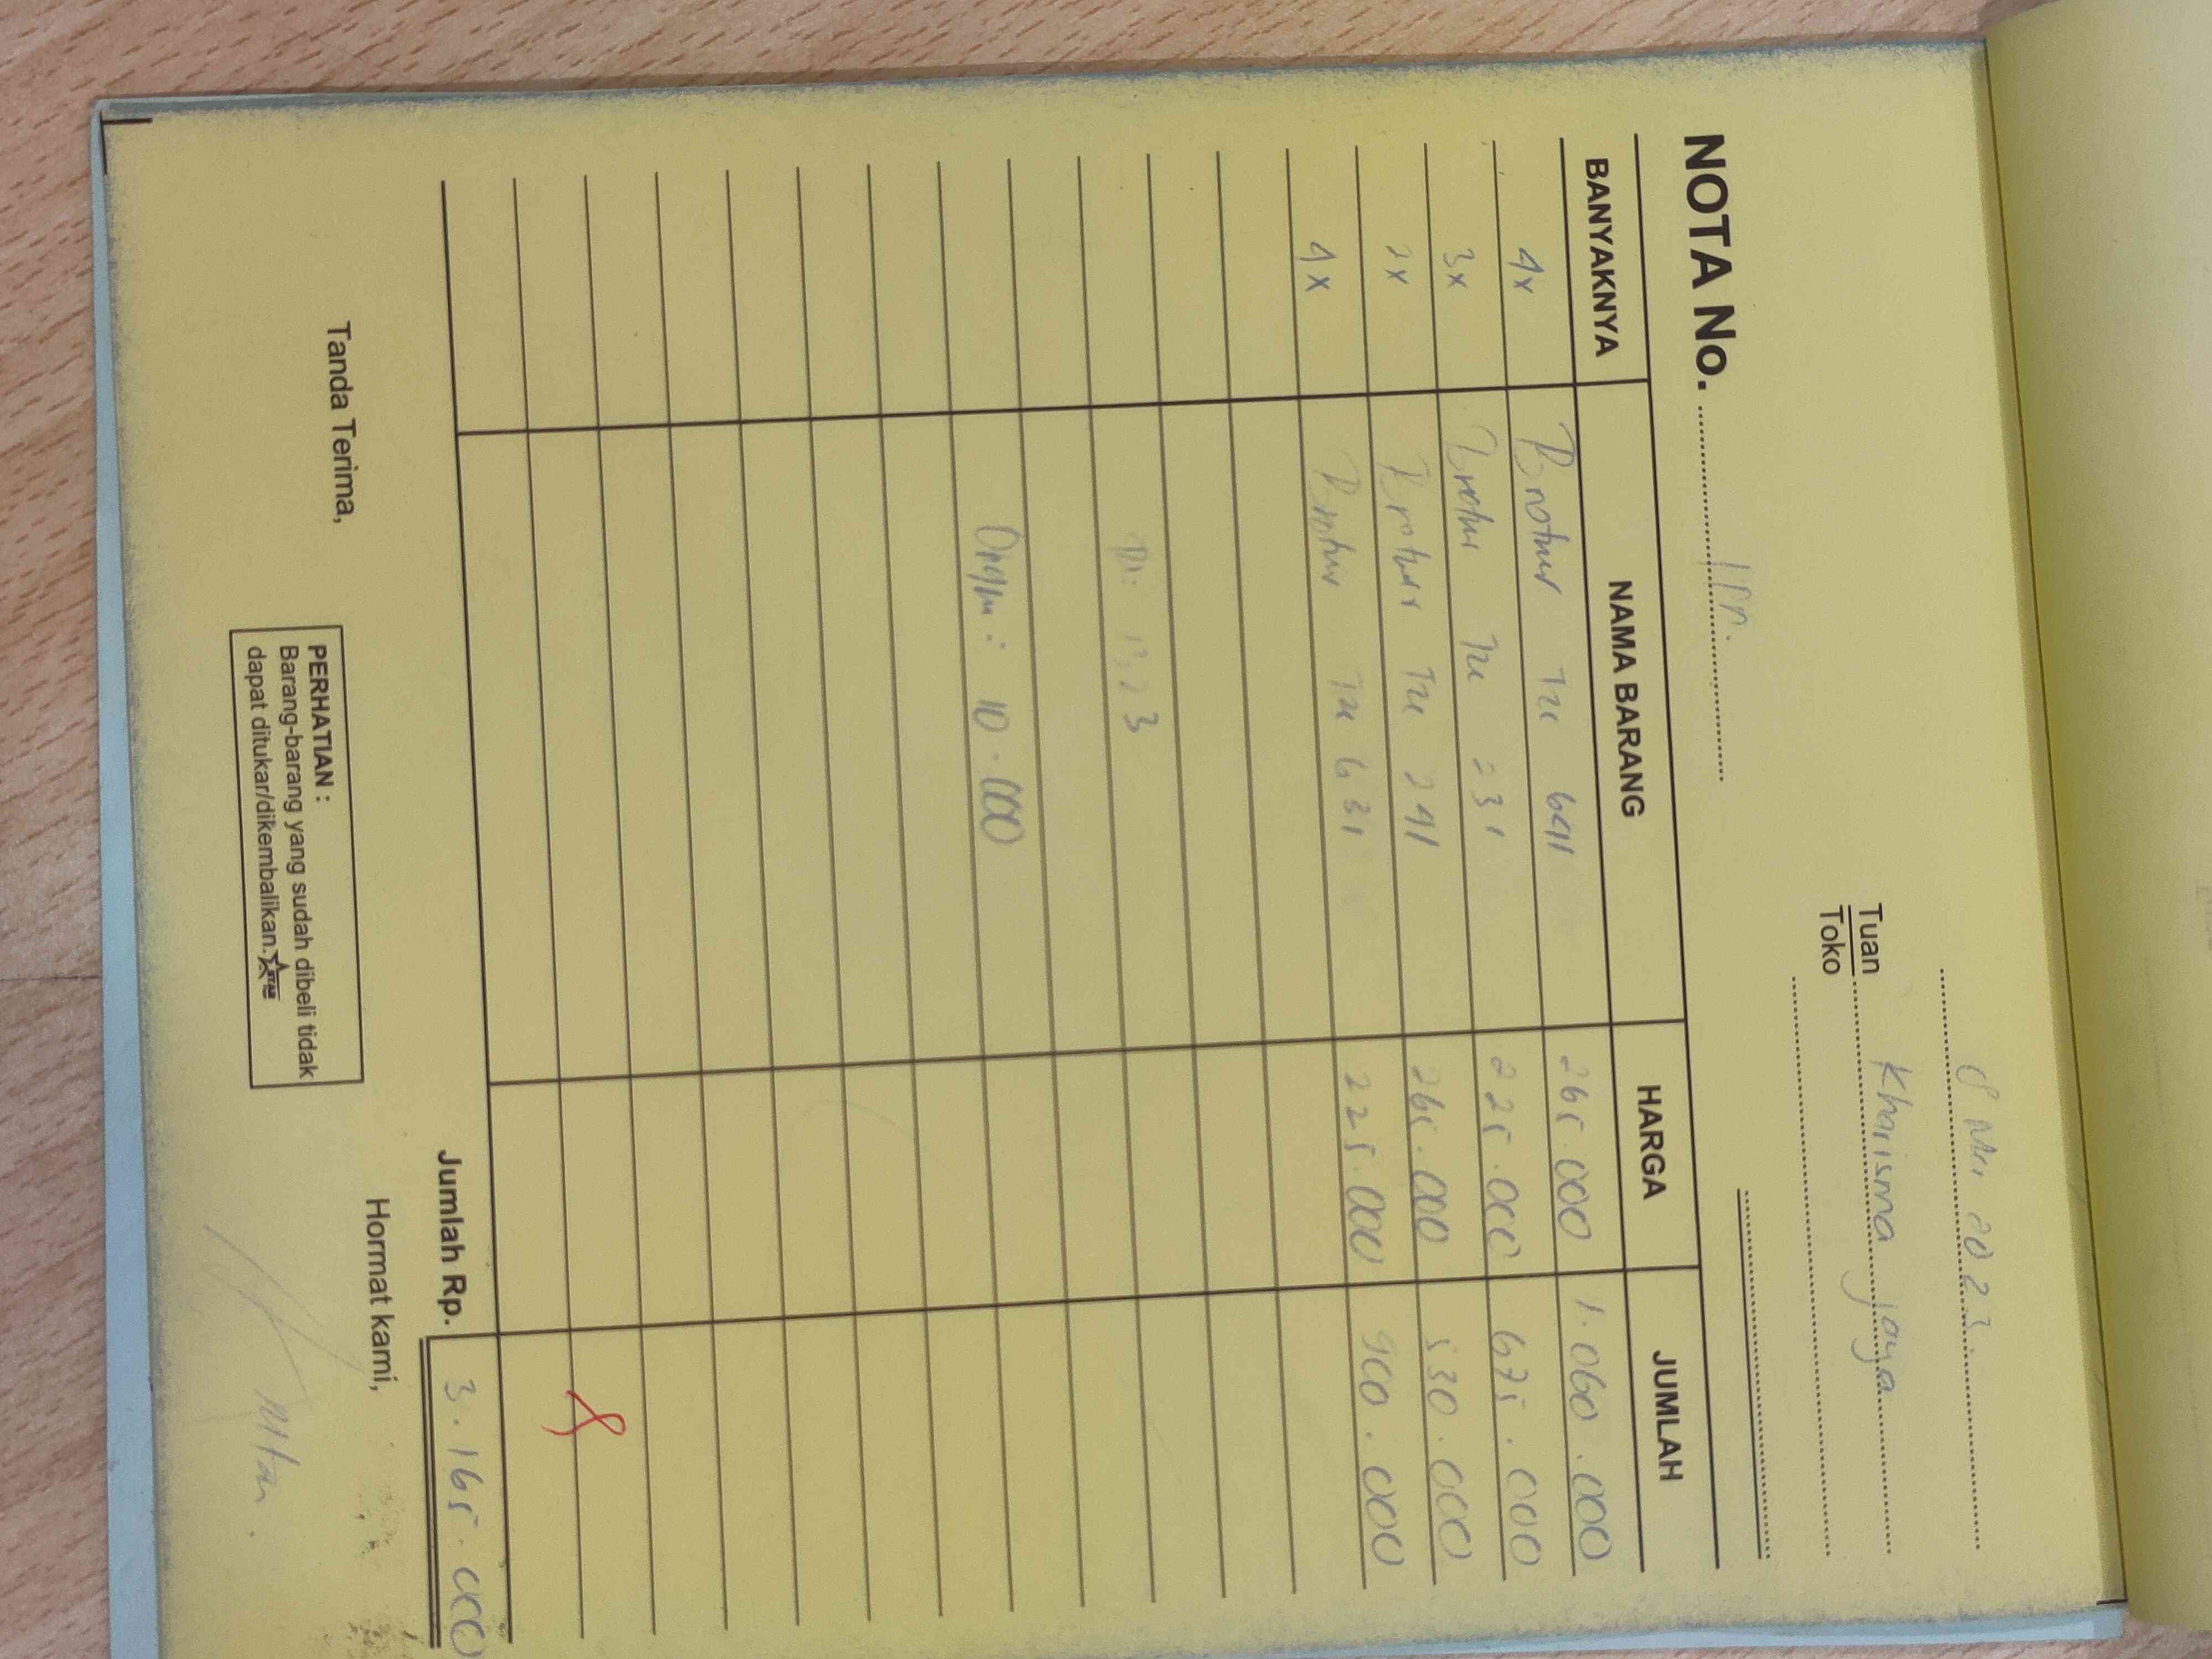 8 Mei 2023
Tuan Kharisma Jaya
Toko
NOTA No.
BANYAKNYA NAMA BARANG HARGA JUMLAH
4x Brother Tze 641 265.000 1.060.000
3x Brother Tze 231 225.000 675.000
2x Brother Tze 241 265.000 530.000
4x Brother Tze 631 225.000 900.000
Ongkir : 10.000
Jumlah Rp. 3.165.000
Tanda Terima, Hormat kami,
PERHATIAN :
Barang-barang yang sudah dibeli tidak
dapat ditukar/dikembalikan.